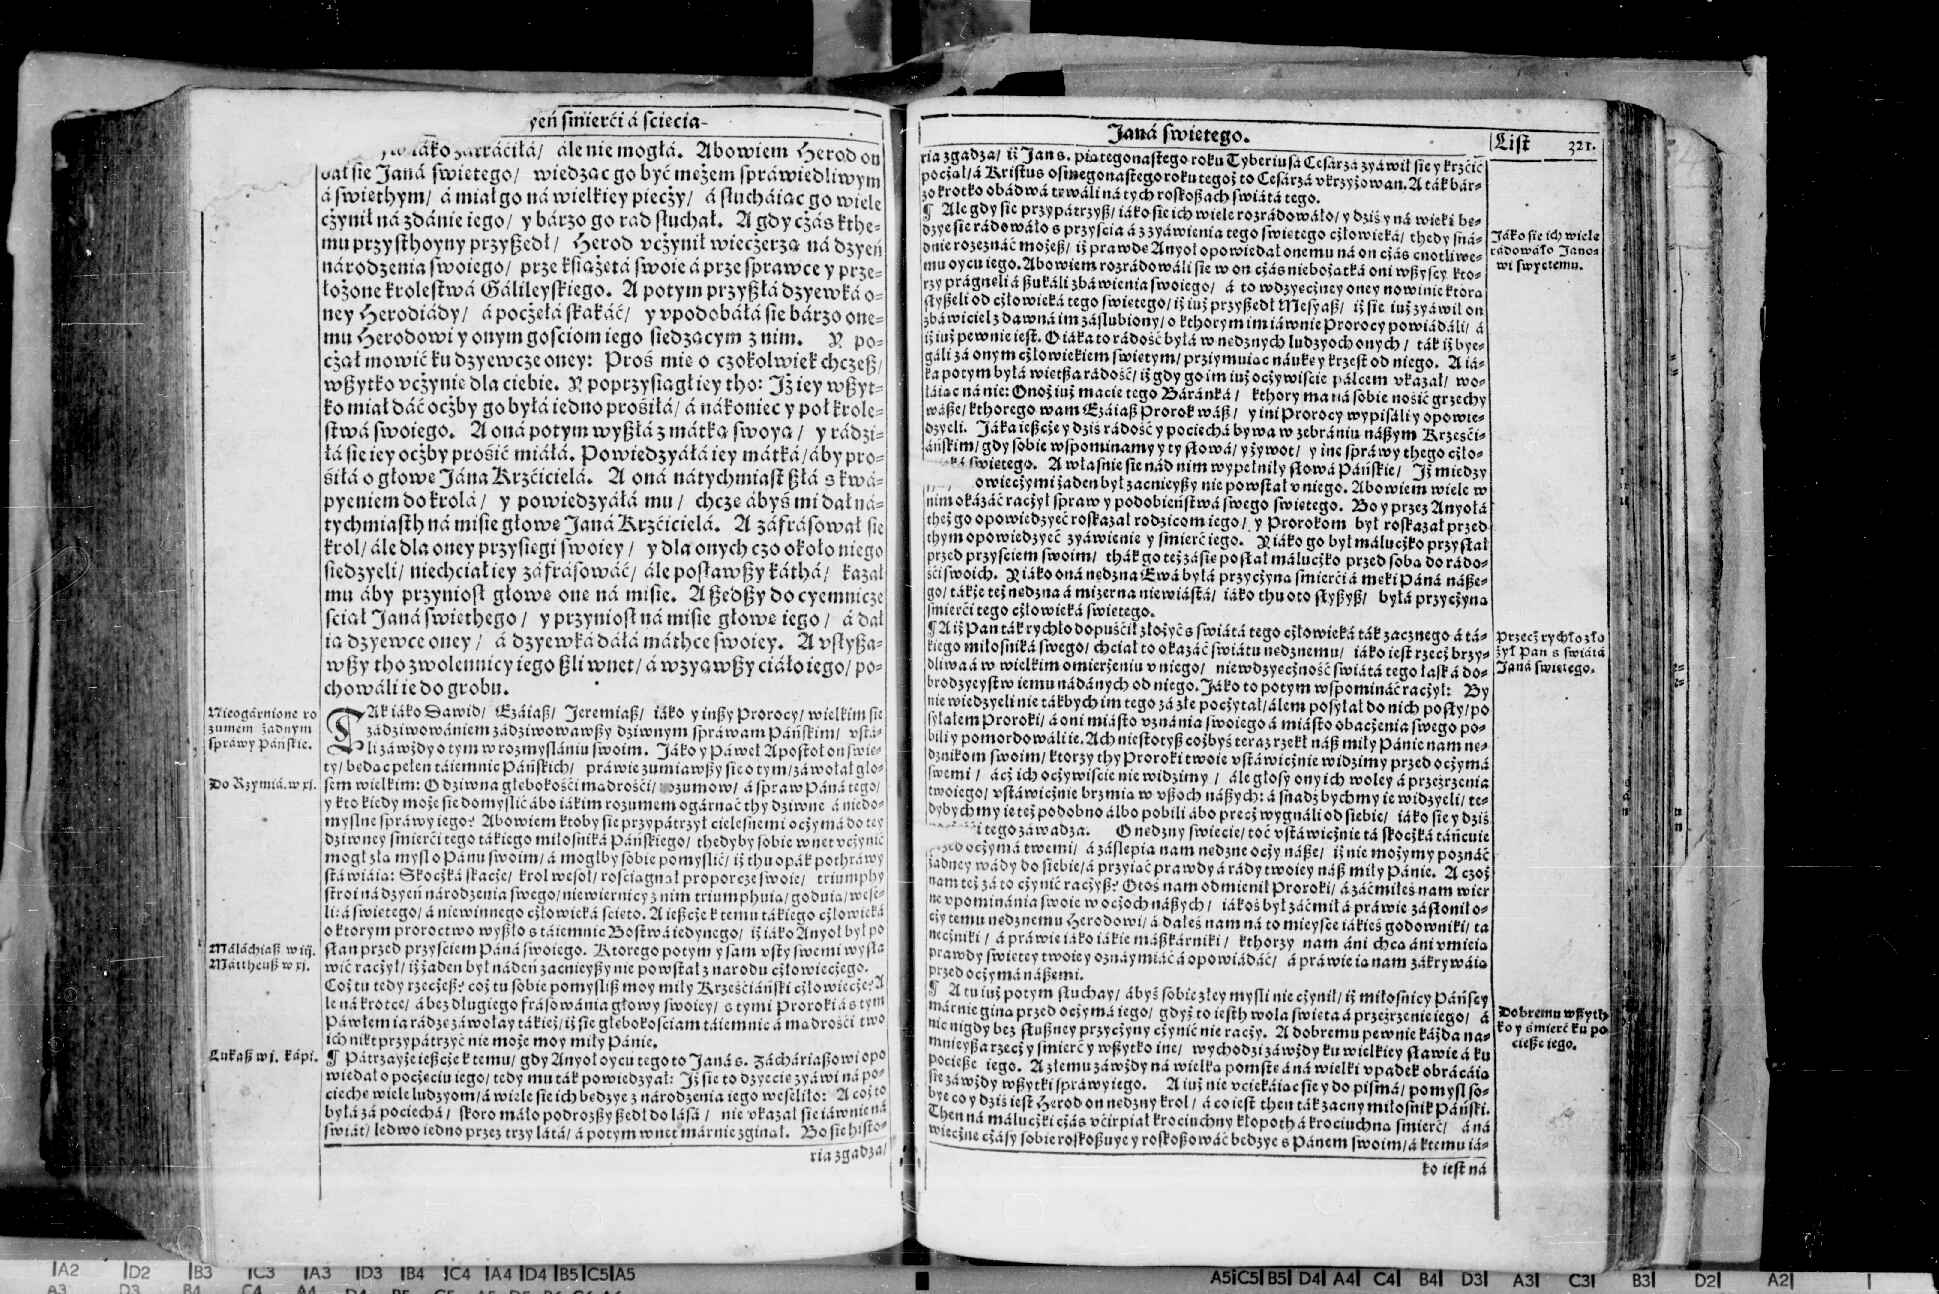 yeń śmierći á śćiecia-
iáko zátráćiłá/ ále nie mogłá. Abowiem Herod on
bał sie Janá swietego/ wiedząc go być mężem spráwiedliwym
á swiethym/ á miał go ná wielkiey pieczży/ á słucháiąc go wiele
cżynił ná zdánie iego/ y bárzo go rad słuchał. A gdy cżás kthe-
mu przysthoyny przyßedł/ Herod vcżynił wieczerzą ná dzyeń
národzenia swoiego/ prze ksiąźętá swoie á prze sprawce y prze-
łożone krolestwá Gálileyskiego. A potym przyßłá dzyewká o-
ney Herodiády/ á pocżęłá skakáć/ y vpodobáłá sie bárzo one-
mu Herodowi y onym gosciom iego siedzącym z nim. Y po-
cżął mowić ku dzyewcze oney: Proś mie o czokolwiek chczeß/
wßytko vcżynię dla ciebie. Y poprzysiągł iey tho: Jż iey wßyt-
ko miał dáć ocżby go byłá iedno prośiłá/ á nákoniec y poł krole-
stwá swoiego. A oná potym wyßłá z mátką swoyą/ y rádzi-
łá sie iey ocżby prośić miáłá. Powiedzyáłá iey mátká/ áby pro-
śiłá o głowe Jáná Krzćicielá. A oná nátychmiast ßłá s kwá-
pyeniem do krolá/ y powiedzyáłá mu/ chczę ábyś mi dał ná-
tychmiasth ná misie głowe Janá Krzćicielá. A záfrásował sie
krol/ ále dla oney przysięgi swoiey/ y dla onych czo około niego
siedzyeli/ niechciał iey záfrásowáć/ ále posławßy káthá/ kazał
mu áby przyniosł głowe one ná misie. A ßedßy do cyemnicze
sciął Janá swiethego/ y przyniosł ná misie głowe iego/ á dał
ią dzyewce oney/ á dzyewká dáłá máthce swoiey. A vsłyßa-
wßy tho zwolennicy iego ßli wnet/ á wzyąwßy ciáło iego/ po-
chowáli ie do grobu.
Nieogárnione ro
zumem żadnym
spráwy Páńskie.
TAk iáko Dawid/ Ezáiaß/ Jeremiaß/ iáko y inßy Prorocy/ wielkim sie
zádziwowániem zádziwowawßy dziwnym spráwam Páńskim/ vstá-
li záwżdy o tym w rozmyslániu swoim. Jáko y Páweł Apostoł on swię-
ty/ będąc pełen táiemnic Páńskich/ práwie zumiawßy sie o tym/ záwołał gło-
Do Rzymiá. w xj.
sem wielkim: O dziwna głębokośći mądrośći/ rozumow/ á spraw Páná tego/
y kto kiedy może sie domyslić ábo iákim rozumem ogárnąć thy dziwne á niedo-
myslne spráwy iego? Abowiem ktoby sie przypátrzył cielesnemi ocżymá do tey
dziwney śmierći tego tákiego miłosniká Páńskiego/ thedyby sobie wnet vcżynić
mogł złą mysl o Pánu swoim/ á mogłby sobie pomyslić/ iż thu opák pothráwy
stáwiáią: Skocżká skacże/ krol wesoł/ rosciągnął proporcze swoie/ triumphy
stroi ná dzyeń národzenia swego/ niewiernicy z nim triumphuią/ goduią/ wese-
li: á swietego/ á niewinnego cżłowieká ścięto. A ießcże k temu tákiego cżłowieká
o ktorym proroctwo wyßło s táiemnic Bostwá iedynego/ iż iáko Anyoł był po
Máláchiaß w iij.
słan przed przyściem Páná swoiego. Ktorego potym y sam vsty swemi wysłá
Mattheuß w xj.
wić racżył/ iż żaden był nádeń zacnieyßy nie powstał z narodu cżłowiecżego.
Coż tu tedy rzecżeß? coż tu sobie pomysliß moy miły Krześćiáński cżłowiecże? A
le ná krotce/ á bez długiego frásowánia głowy swoiey/ s tymi Proroki á s tym
Páwłem iá rádzę záwołay tákież/ iż sie głębokościam táiemnic á mądrości two
ich nikt przypátrzyć nie może moy miły Pánie.
Lukaß w j. kápi.
¶ Pátrzayże ießcże k temu/ gdy Anyoł oycu tego to Janá s. Zácháriaßowi opo
wiedał o pocżęciu iego/ tedy mu ták powiedzyał: Jż sie to dzyecię zyáwi ná po-
ciechę wiele ludzyom/ á wiele sie ich będzye z národzenia iego weseliło: A coż to
byłá zá pociechá/ skoro máło podroßßy ßedł do lásá/ nie vkazał sie iáwnie ná
świát/ ledwo iedno przez trzy látá/ á potym wnet márnie zginął. Bo sie histo-
ria zgadza/
Janá swietego.
List 321.
ria zgadza/ iż Jan s. piątegonastego roku Tyberiusá Cesárzá zyáwił sie y krzćić
pocżął/ á Kristus osmegonastego roku tegoż to Cesárzá vkrzyżowan. A ták bár-
zo krotko obádwá trwáli ná tych roskoßách świátá tego.
¶ Ale gdy sie przypátrzyß/ iáko sie ich wiele rozrádowáło/ y dziś y ná wieki bę-
dzye sie rádowáło s przyścia á z zyáwienia tego swietego cżłowieká/ thedy sná-
Jáko sie ich wiele
rádowáło Jano-
wi swyętemu.
dnie rozeznáć możeß/ iż prawdę Anyoł opowiedał onemu ná on cżás cnotliwe-
mu oycu iego. Abowiem rozrádowáli sie w on cżás niebożątká oni wßyscy kto-
rzy prágnęli á ßukáli zbáwienia swoiego/ á to wdzyęcżney oney nowinie ktorą
słyßeli od cżłowieká tego swietego/ iż iuż przyßedł Mesyaß/ iż sie iuż zyáwił on
zbáwiciel z dawná im záslubiony/ o kthorym im iáwnie Prorocy powiádáli/ á
iż iuż pewnie iest. O iáka to rádość byłá w nędznych ludzyoch onych/ ták iż bye-
gáli zá onym cżłowiekiem swiętym/ przyimuiąc náukę y krzest od niego. A iá-
ka potym byłá więtßa rádość/ iż gdy go im iuż ocżywiście pálcem vkazał/ wo-
łáiąc ná nie: Onoż iuż macie tego Báránká/ kthory ma ná sobie nośić grzechy
wáße/ kthorego wam Ezáiaß Prorok wáß/ y ini Prorocy wypisáli y opowie-
dzyeli. Jáka ießcże y dziś rádość y pociechá bywa w zebrániu náßym Krześći-
áńskim/ gdy sobie wspominamy y ty słowá/ y żywot/ y ine spráwy thego cżło-
wieká swietego. A własnie sie nád nim wypełniły słowá Páńskie/ Jż miedzy
owiecżymi żaden był zacnieyßy nie powstał v niego. Abowiem wiele w
nim okázáć racżył spraw y podobieństwá swego swietego. Bo y przez Anyołá
theż go opowiedzyeć roskazał rodzicom iego/ y Prorokom był roskazał przed
thym opowiedzyeć zyáwienie y śmierć iego. Y iáko go był málucżko przysłał
przed przyściem swoim/ thák go też zásię posłał málucżko przed sobą do rádo-
śći swoich. Y iáko oná nędzna Ewá byłá przycżyná śmierći á męki Páná náße-
go/ tákże też nędzna á mizerna niewiástá/ iáko thu oto słyßyß/ byłá przycżyná
śmierći tego cżłowieká swietego.
¶ A iż Pan ták rychło dopuśćił złożyć s świátá tego cżłowieká ták zacznego á tá-
Przecż rychło zło
żył Pan s świátá
Janá swiętego.
kiego miłosniká swego/ chciał to okázáć świátu nędznemu/ iáko iest rzecż brzy-
dliwa á w wielkim omierżeniu v niego/ niewdzyęcżność świátá tego łask á do-
brodzyeystw iemu nádánych od niego. Jáko to potym wspomináć racżył: By
nie wiedzyeli nie tákbych im tego zá złe pocżytał/ álem posyłał do nich posły/ po
syłałem Proroki/ á oni miásto vznánia swoiego á miásto obacżenia swego po-
bili y pomordowáli ie. Ach niestotyß cożbyś teraz rzekł náß miły Pánie nam nę-
dznikom swoim/ ktorzy thy Proroki twoie vstáwicżnie widzimy przed ocżymá
swemi/ ácż ich ocżywiście nie widzimy/ ále głosy ony ich woley á przeźrzenia
twoiego/ vstáwicżnie brzmią w vßoch náßych: á snadź bychmy ie widzyeli/ te-
dybychmy ie też podobno álbo pobili ábo precż wygnáli od siebie/ iáko sie y dziś
i tego záwadza. O nędzny świecie/ toć vstáwicżnie tá skocżká táńcuie
przed ocżymá twemi/ á zásłepia nam nędzne ocży náße/ iż nie możymy poznáć
żadney wády do siebie/ á przyiąć prawdy á rády twoiey náß miły Pánie. A czoż
nam też zá to cżynić racżyß? Otoś nam odmienił Proroki/ á záćmiłeś nam wier
ne vpominánia swoie w ocżoch náßych/ iákoś był záćmił á práwie zásłonił o-
cży temu nędznemu Herodowi/ á dałeś nam ná to mieysce iákieś godowniki/ tá
necżniki/ á práwie iáko iákie máßkárniki/ kthorzy nam áni chcą áni vmieią
prawdy swiętey twoiey oznaymiáć á opowiádáć/ á práwie ią nam zákrywáią
przed ocżymá náßemi.
¶ A tu iuż potym słuchay/ ábyś sobie złey mysli nie cżynił/ iż miłosnicy Páńscy
márnie giną przed ocżymá iego/ gdyż to iesth wola swięta á przeźrzenie iego/ á
Dobremu wßyth
ko y śmierć ku po
cieße iego.
nic nigdy bez słußney przycżyny cżynić nie racży. A dobremu pewnie káżda na-
mnieyßa rzecż y śmierć y wßytko ine/ wychodzi záwżdy ku wielkiey sławie á ku
pocieße iego. A złemu záwżdy ná wielką pomstę áná wielki vpadek obrácáią
sie záwżdy wßytki spráwy iego. A iuż nie vciekáiąc sie y do pismá/ pomysl so-
bye co y dziś iest Herod on nędzny krol/ á co iest then ták zacny miłosnik Páński.
Then ná málucżki cżás vćirpiał krociuchny kłopoth á krociuchną śmierć/ áná
wiecżne cżásy sobie roskoßuye y roskoßowáć będzye s Pánem swoim/ á k temu iá-
ko iest ná